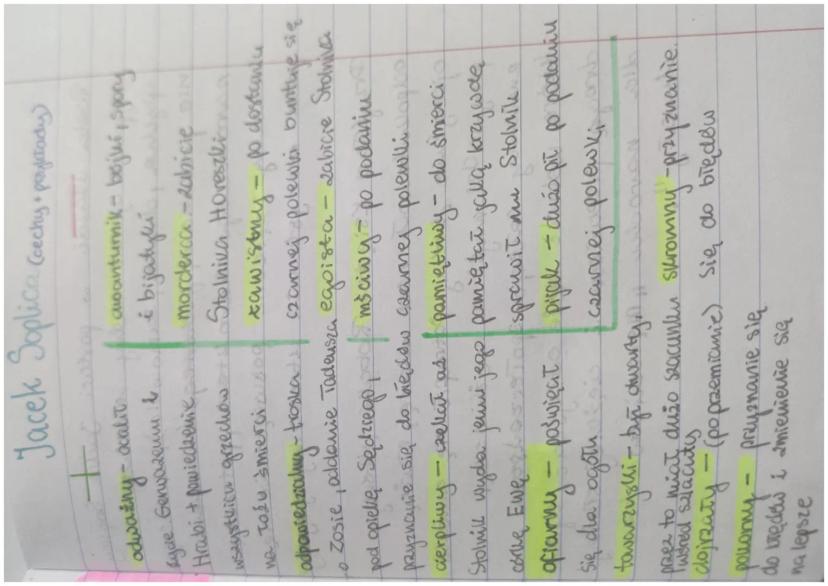 Jacek Soplica (cechy + przykłady)
+
odważny - ocalił
życie Gerwazemu i
Hrabi + powiedzenie
wszystkich grzechów
na łożu śmierci
odpowiedzialny - troska
o Zosię, oddanie Tadeusza
pod opiekę Sędziego,
przyznanie się do błędów
cierpliwy - czekał aż
Stolnik wyda jemu jego
córkę Ewę
ofiarny - poświęcał
się dla ogółu
towarzyski - był otwarty,
przez to miał dużo szacunku
wśród szlachty
dojrzały - (po przemianie)
pokorny - przyznanie się
do błędów i zmienienie się
na lepsze
skromny - przyznanie
się do błędów
-
awanturnik - bójki, spory
i bijatyki
morderca - zabicie
Stolnika Horeszki
zawistny - po dostaniu
czarnej polewki buntuje się
egoista - zabicie Stolnika
mściwy - po podaniu
czarnej polewki
pamiętliwy - do śmierci
pamiętał jaką krzywdę
sprawił mu Stolnik
pijak - dużo pił po podaniu
czarnej polewki